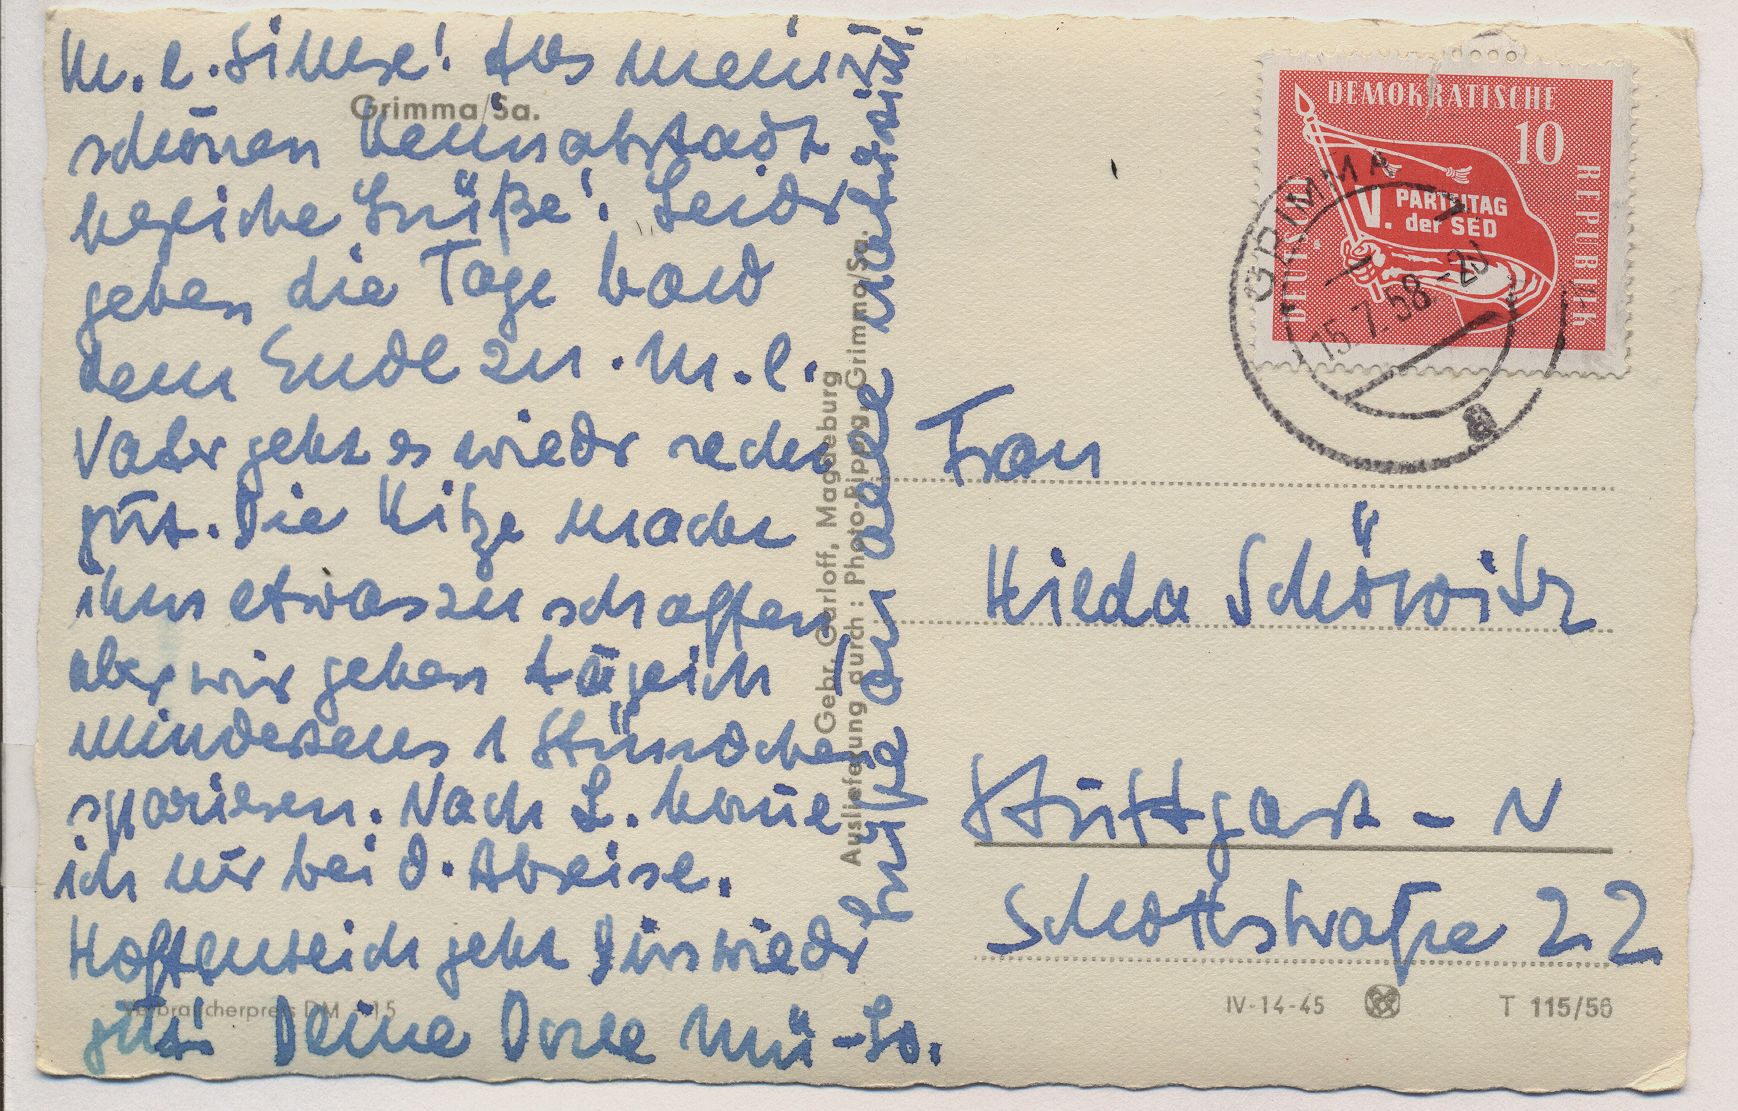 M. l. Gittese! Aus meiner
schönen Heimatstadt
herzliche Grüße! Leider
gehen die Tage bald
dem Ende zu. M. l.
Vater geht es wieder recht
gut. Die Hitze macht
ihm etwas zu schaffen,
aber wir gehen täglich
mindestens 1 Stündchen
spazieren. Nach L. komme
ich nur bei d. Abreise.
Hoffentlich geht Dir's wieder
gut! Deine Dorle Mü-Lo.
Grüße an alle
Grimma/Sa.
Verbraucherpreis DM 15
Gebr. Garloff, Magdeburg
Auslieferung durch: Photo-Rippig, Grimma/Sa.
DEMOKRATISCHE
10
REPUBLIK
DEUTSCHE
V. PARTEITAG
der SED
GRIMMA 1
15.7.58-20
a
Frau
Hilda Schöwitz
Stuttgart-N
Schottstraße 22
IV-14-45
T 115/56